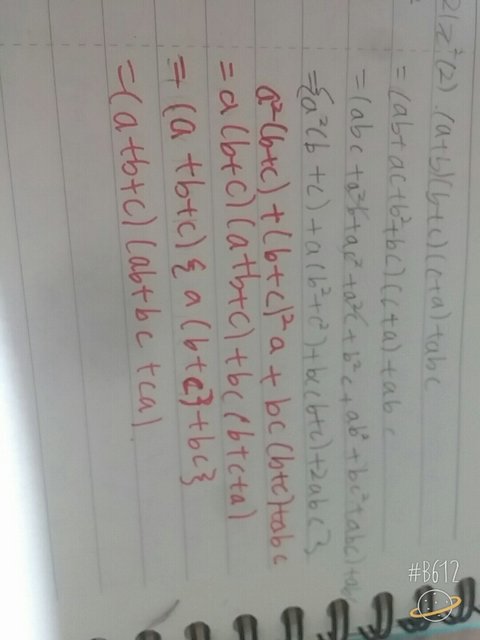 (2). (a+b)(b+c)(c+a)+abc
=(ab+ac+b²+bc)(c+a)+abc
=(abc+a²b+ac²+a²c+b²c+ab²+bc²+abc)+
={a²(b+c)+a(b²+c²)+bc(b+c)+2abc}
a²(b+c)+(b+c)²a+bc(b+c)+abc
=a(b+c)(a+b+c)+bc(b+c+a)
=(a+b+c){a(b+c}+bc}
=(a+b+c)(ab+bc+ca)
#B612